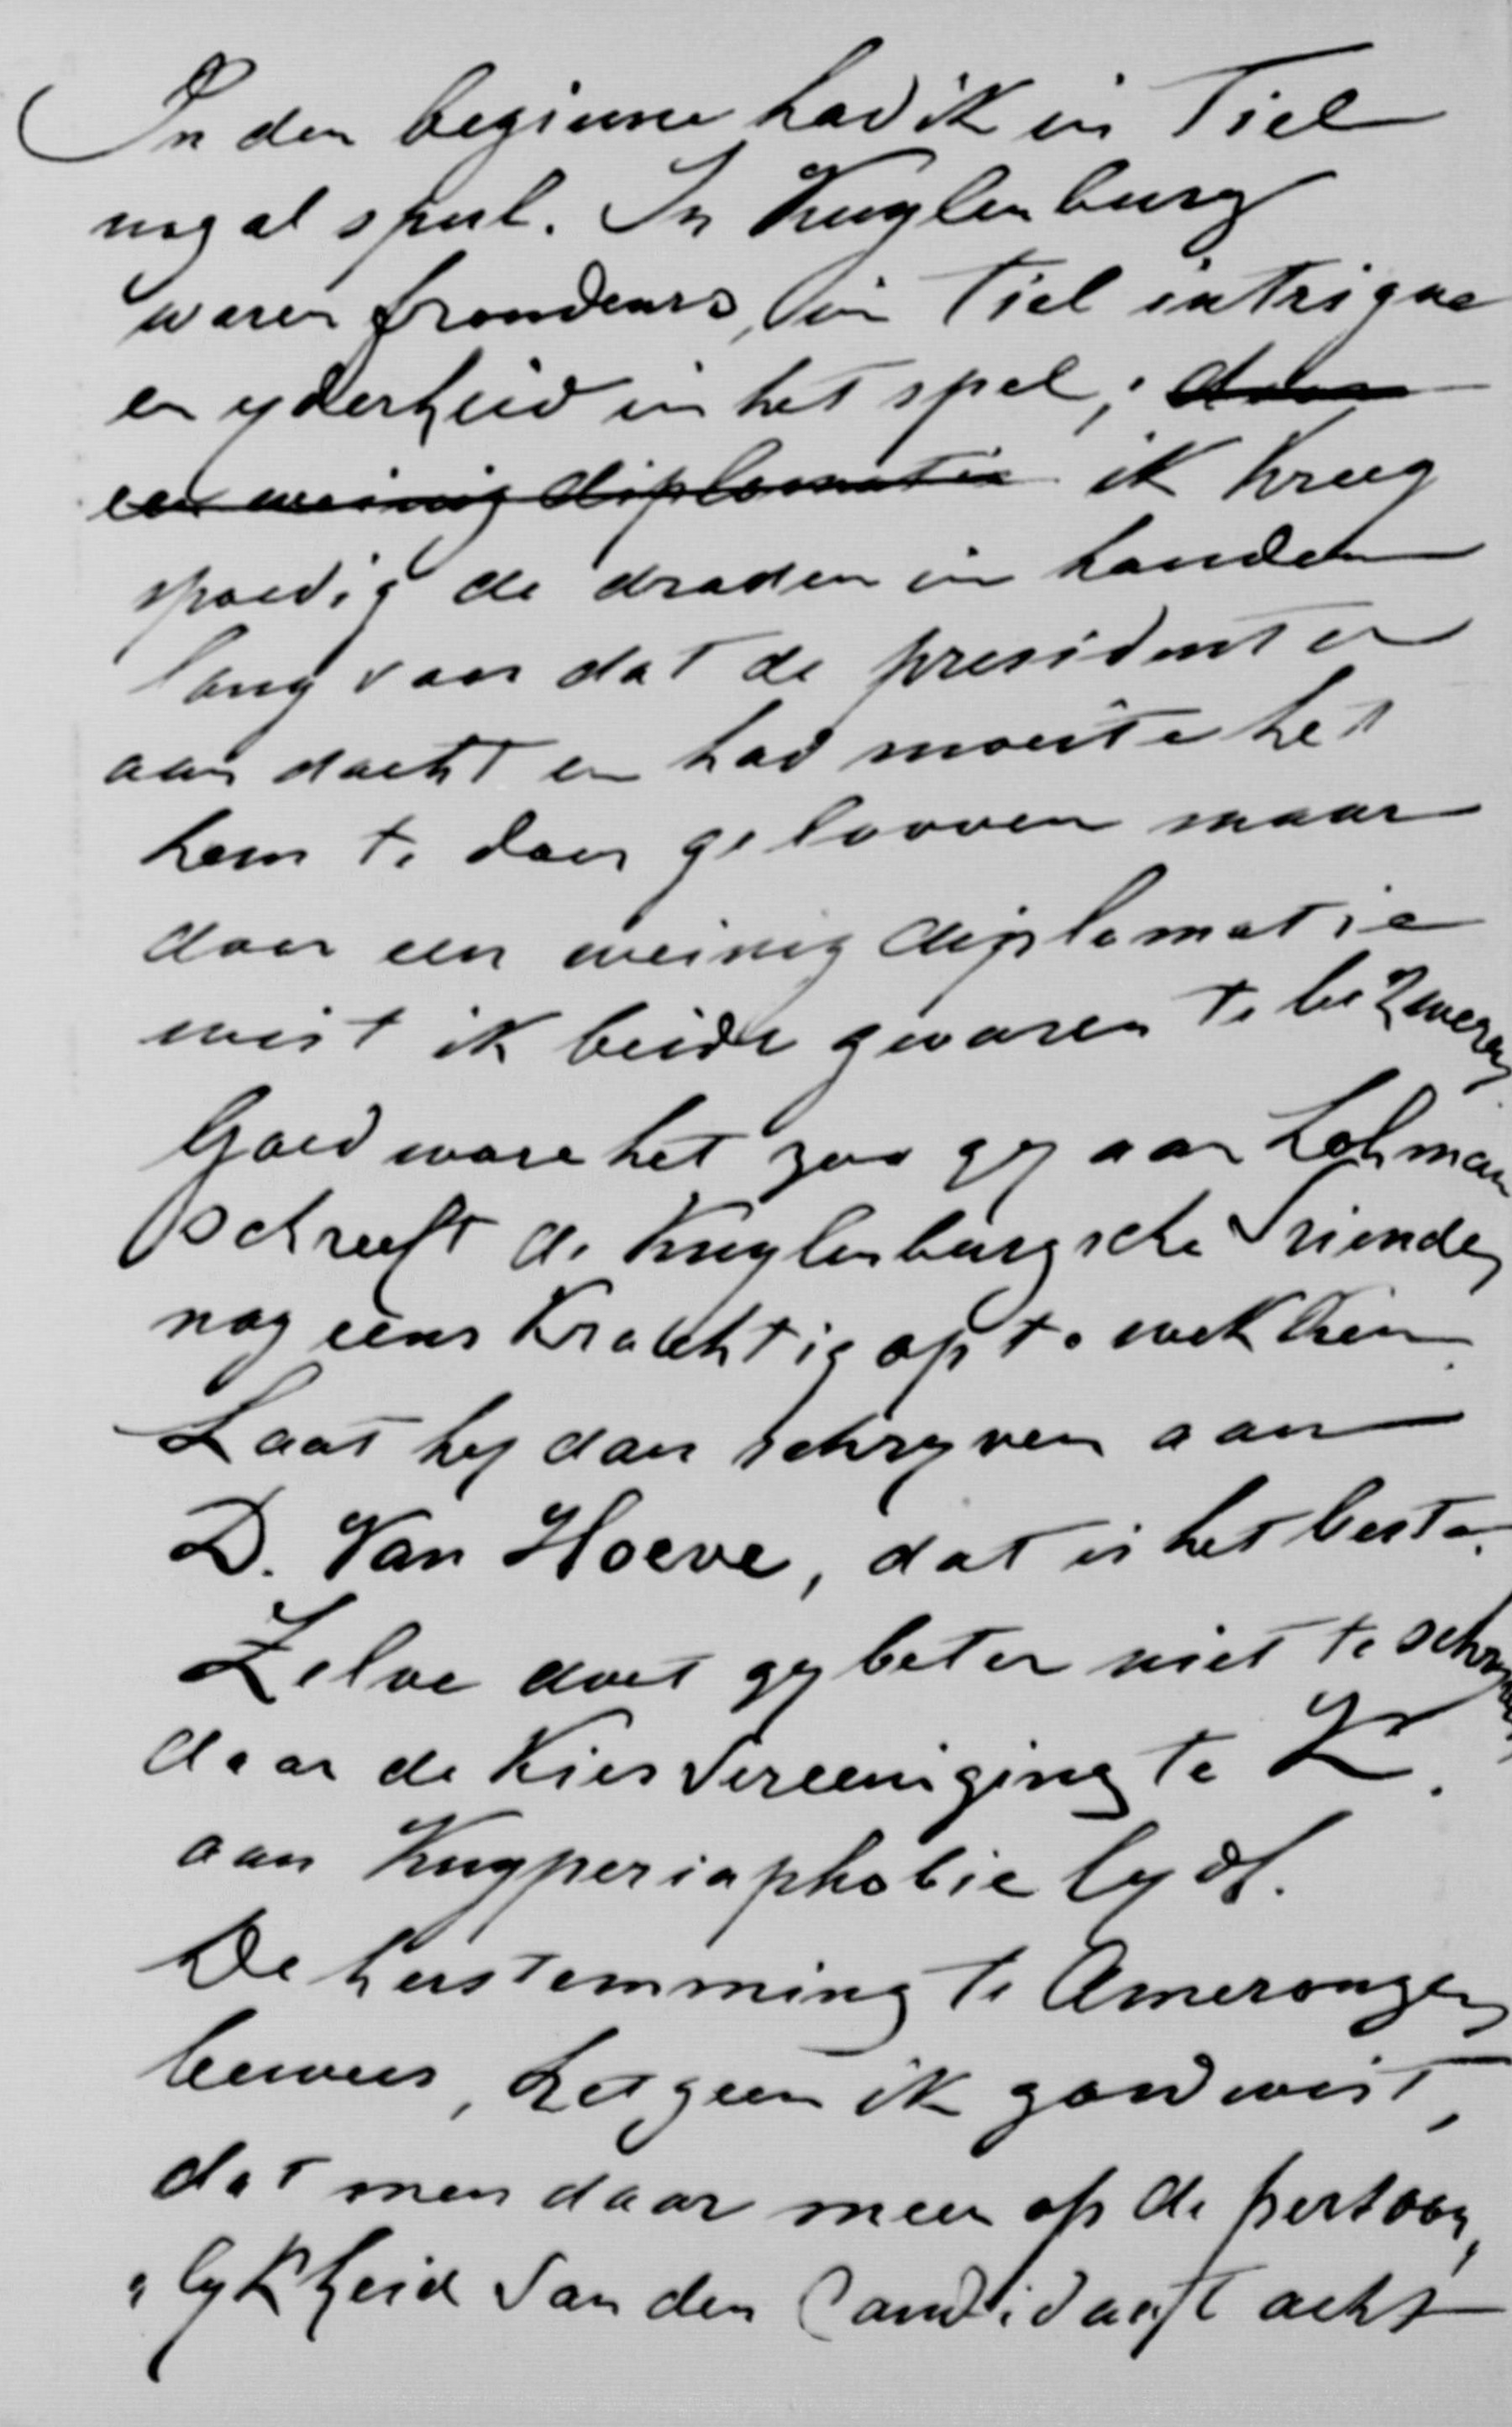 In den beginne had ik in Tiel
nog al spul. In Kuylenburg
waren frondeurs, in Tiel intrigue
en ijdelheid in het spel; door
een weinig diplomatie ik kreeg
spoedig de draden in handen
lang voor dat de president er
aan dacht en had moeite het
hem te doen gelooven maar
door een weinig diplomatie
wist ik beide gevaren te bezweren
Goed ware het zoo gy aan Lohman
schreeft de Kuylenburgsche vrienden
nog eens krachtig op te wekken.
Laat hy dan schryven aan
D. Van Hoeve, dat is het beste.
Zelve doet gy beter niet te schryven
daar de Kiesvereeniging te K.
aan Kuyperiaphobie lydt.
De herstemming te Amerongen
bewees, hetgeen ik goed wist,
dat men daar meer op de persoon„
„lykheid van den Candidaat acht